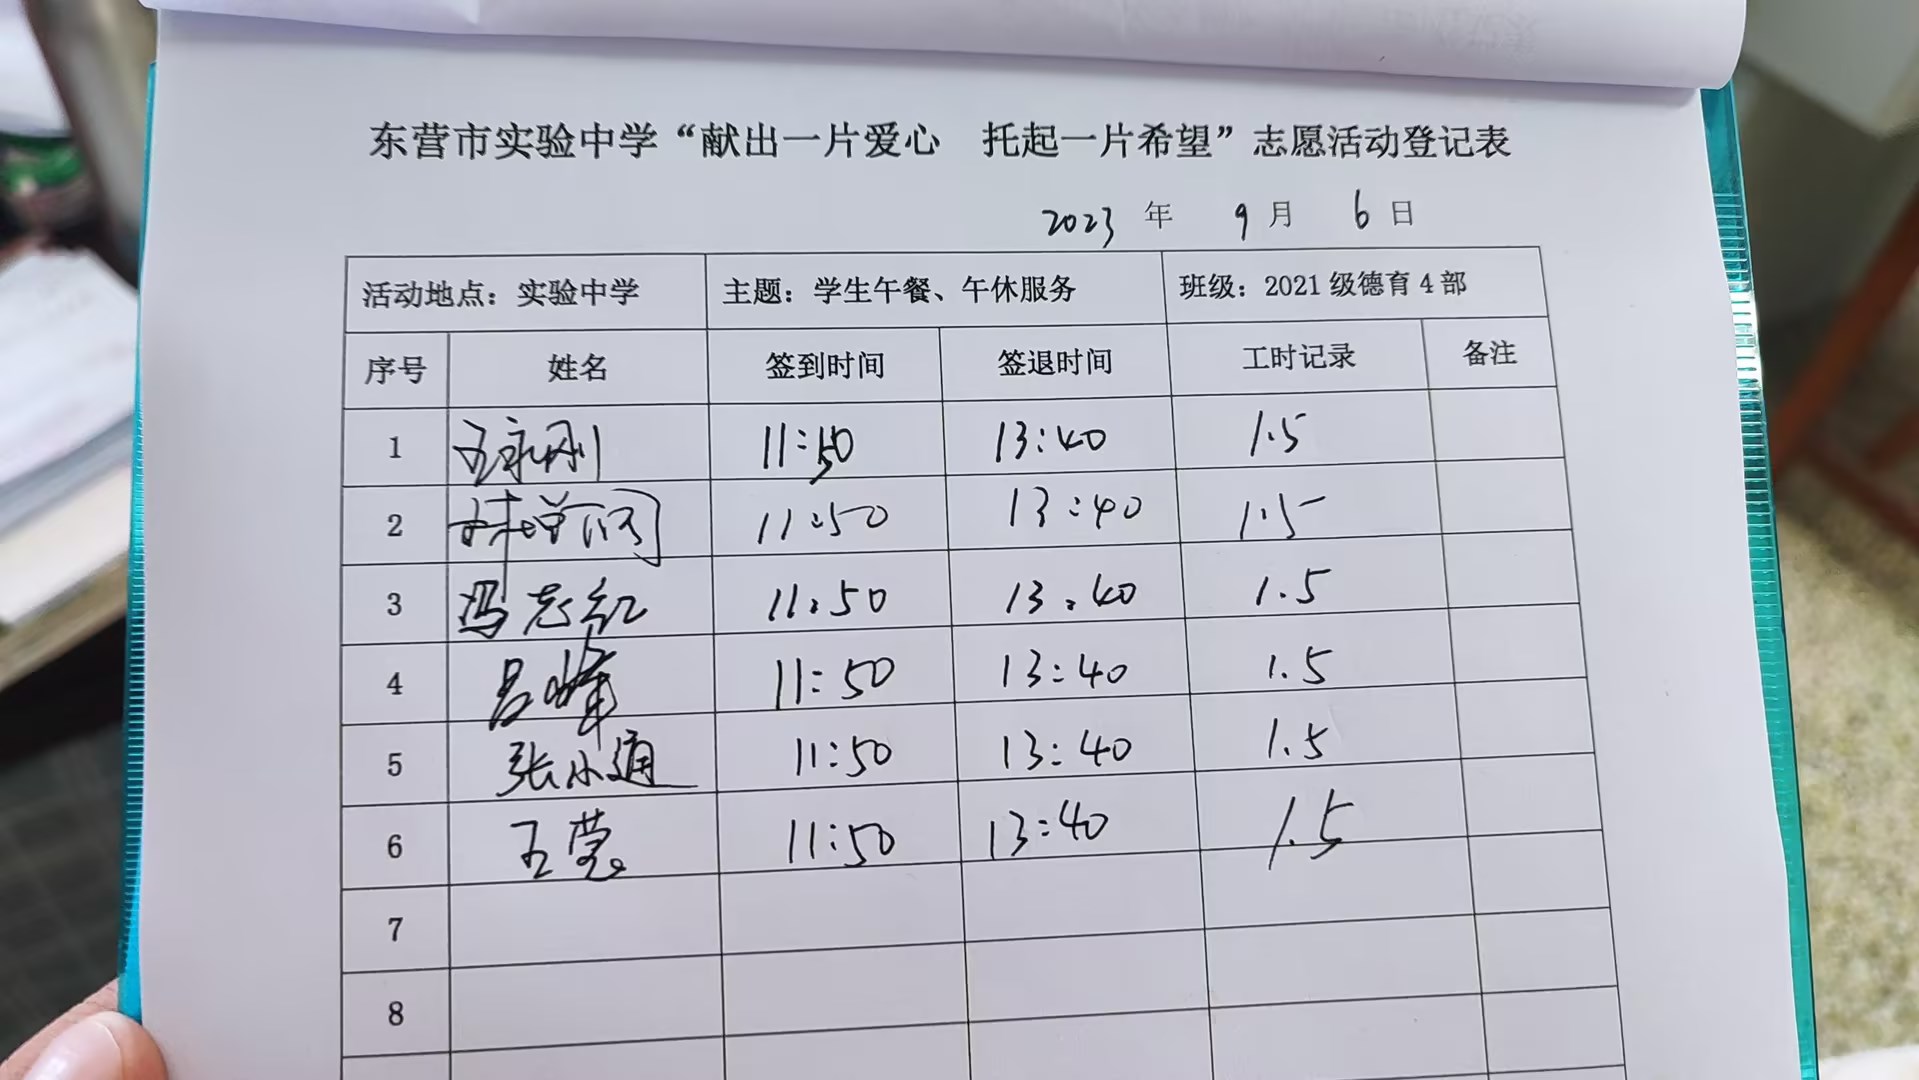 东营市实验中学“献出一片爱心 托起一片希望”志愿活动登记表
2023 年 9 月 6 日
活动地点：实验中学 主题：学生午餐、午休服务 班级：2021 级德育 4 部
序号 姓名 签到时间 签退时间 工时记录 备注
1 王永刚 11:50 13:40 1.5
2 11:50 13:40 1.5
3 冯志红 11:50 13:40 1.5
4 吕峰 11:50 13:40 1.5
5 张小通 11:50 13:40 1.5
6 王莹 11:50 13:40 1.5
7
8